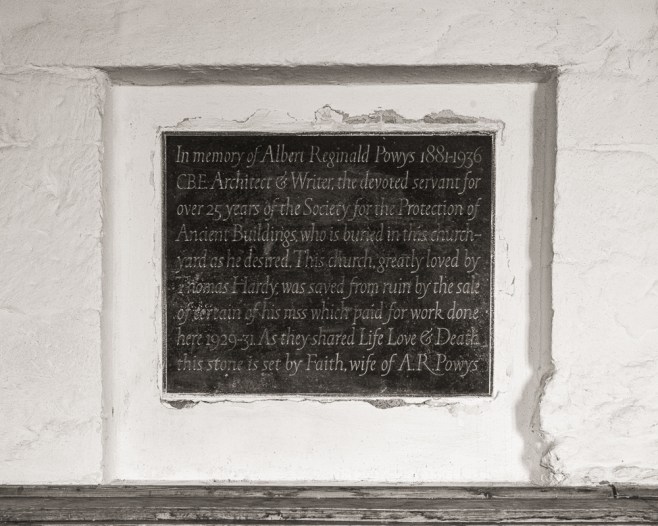 In memory of Albert Reginald Powys 1881-1936
CBE Architect & Writer, the devoted servant for
over 25 years of the Society for the Protection of
Ancient Buildings, who is buried in this church-
yard as he desired. This church, greatly loved by
Thomas Hardy, was saved from ruin by the sale
of certain of his mss which paid for work done
here 1929-31. As they shared Life Love & Death
this stone is set by Faith, wife of A.R. Powys